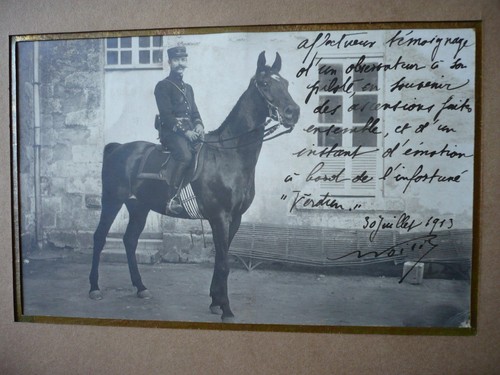 Affectueux témoignage
d'un observateur à son
pilote, en souvenir
des ascensions faites
ensemble, et d'un
instant d'émotion
à bord de l'infortuné
30 Juillet 1913